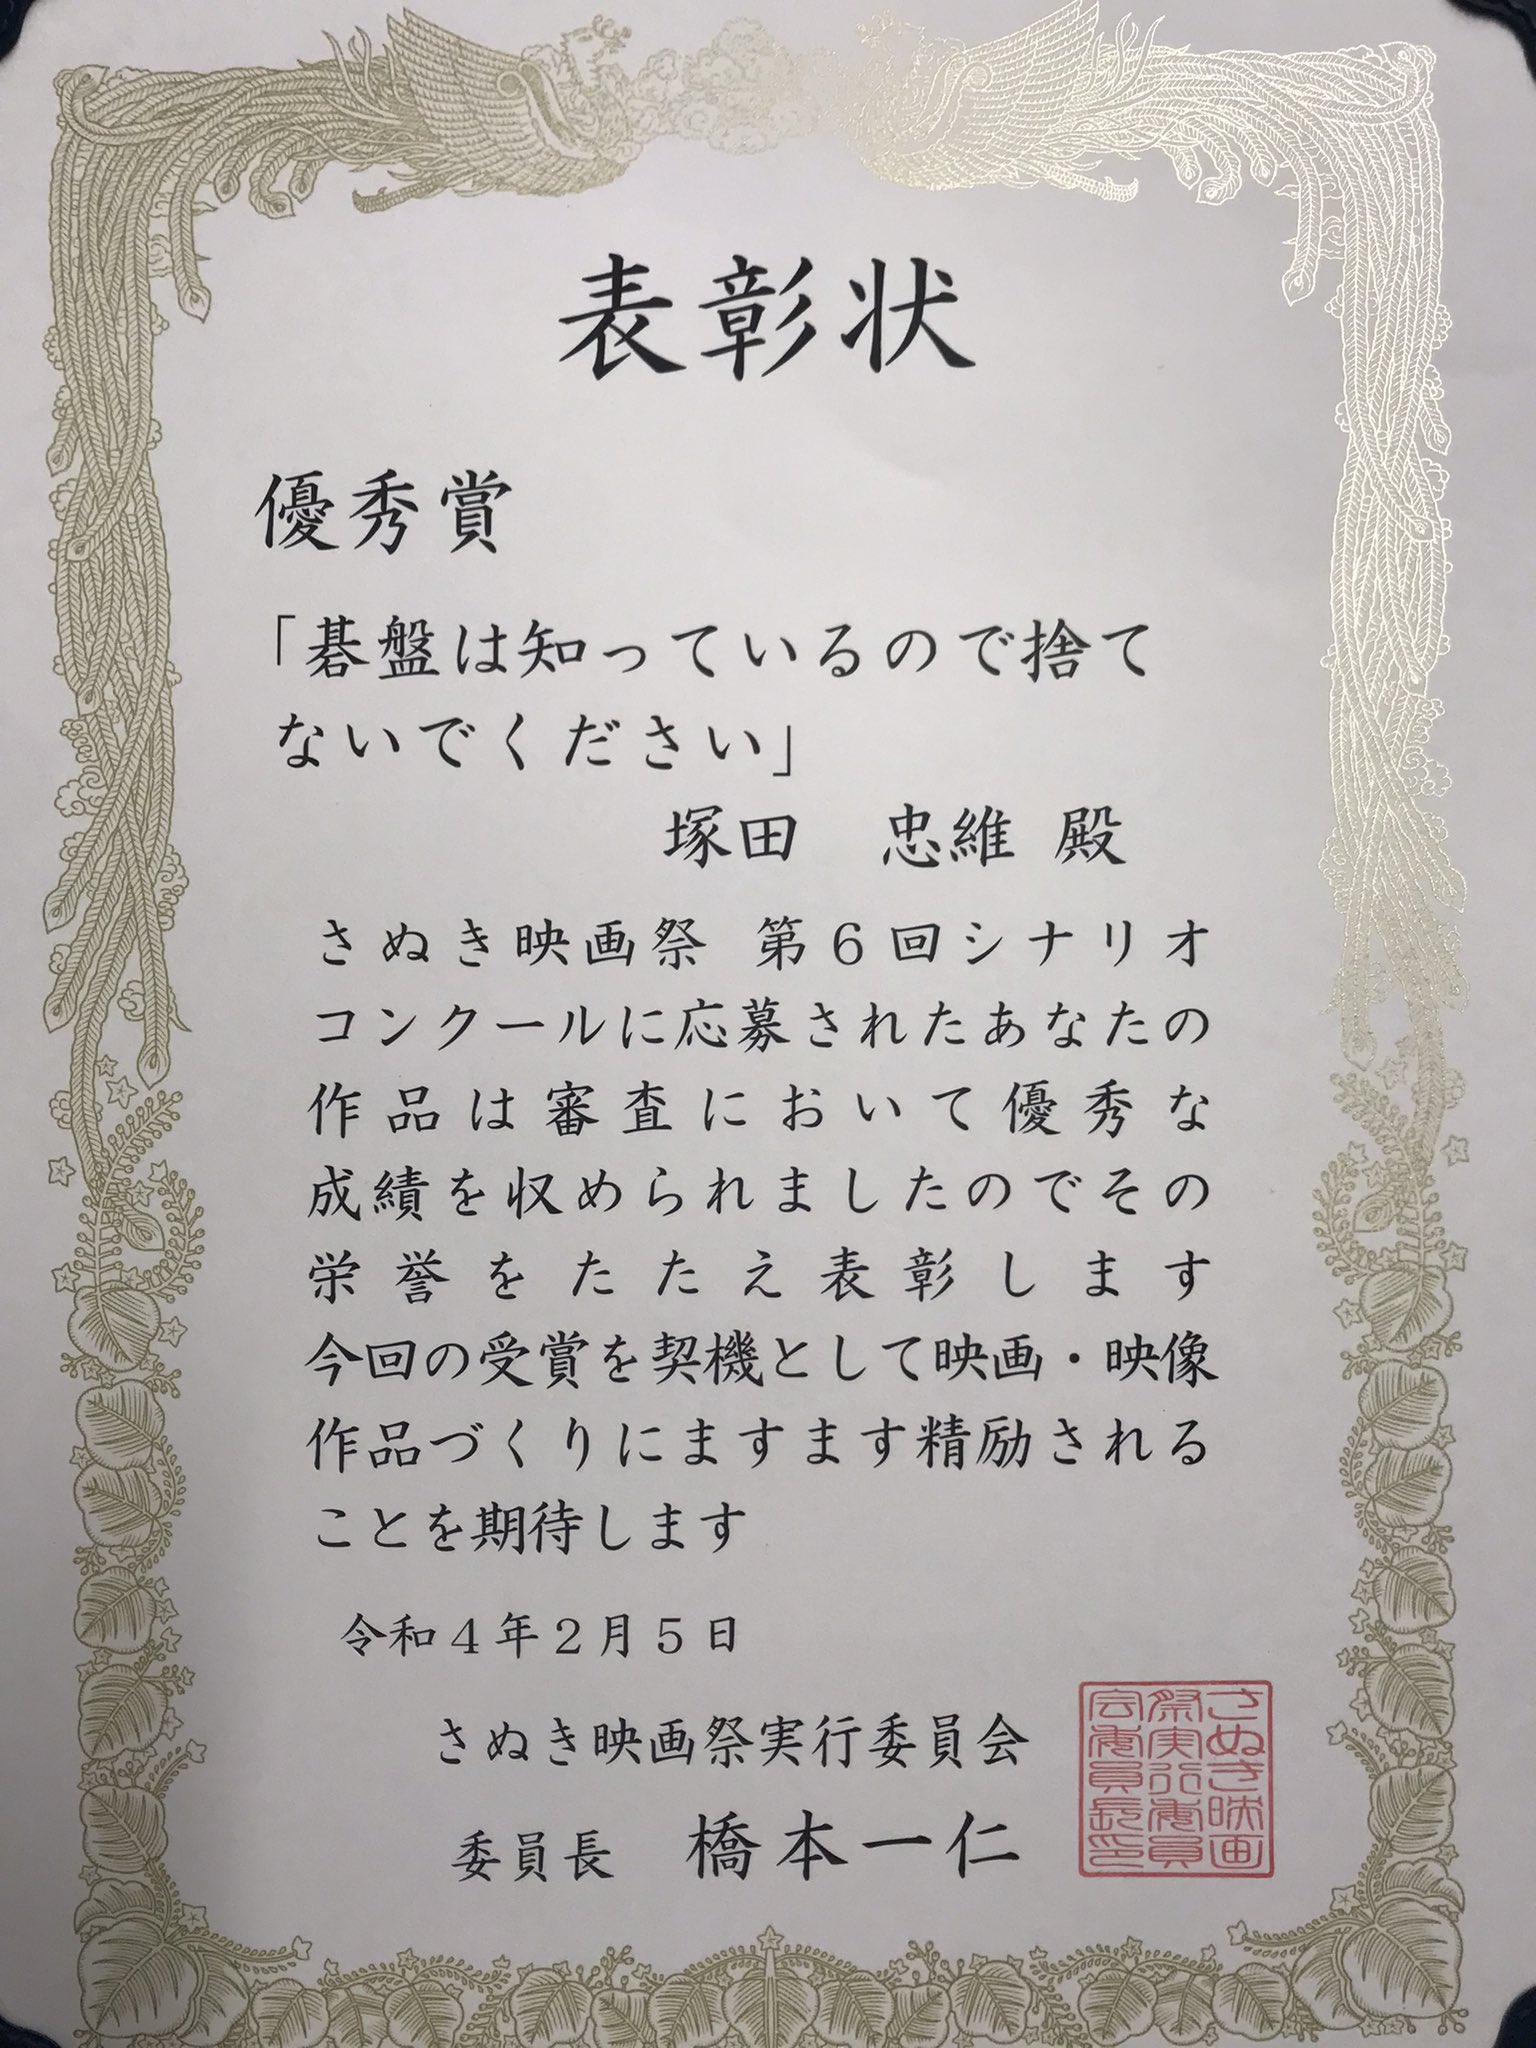 表彰状
優秀賞
「碁盤は知っているので捨て
ないでください」
塚田 忠維 殿
さぬき映画祭 第6回シナリオ
コンクールに応募されたあなたの
作品は審査において優秀な
成績を収められましたのでその
栄誉をたたえ表彰します
今回の受賞を契機として映画・映像
作品づくりにますます精励される
ことを期待します
令和4年2月5日
さぬき映画祭実行委員会
委員長 橋本一仁
さぬき映画
祭実行委員
会委員長印